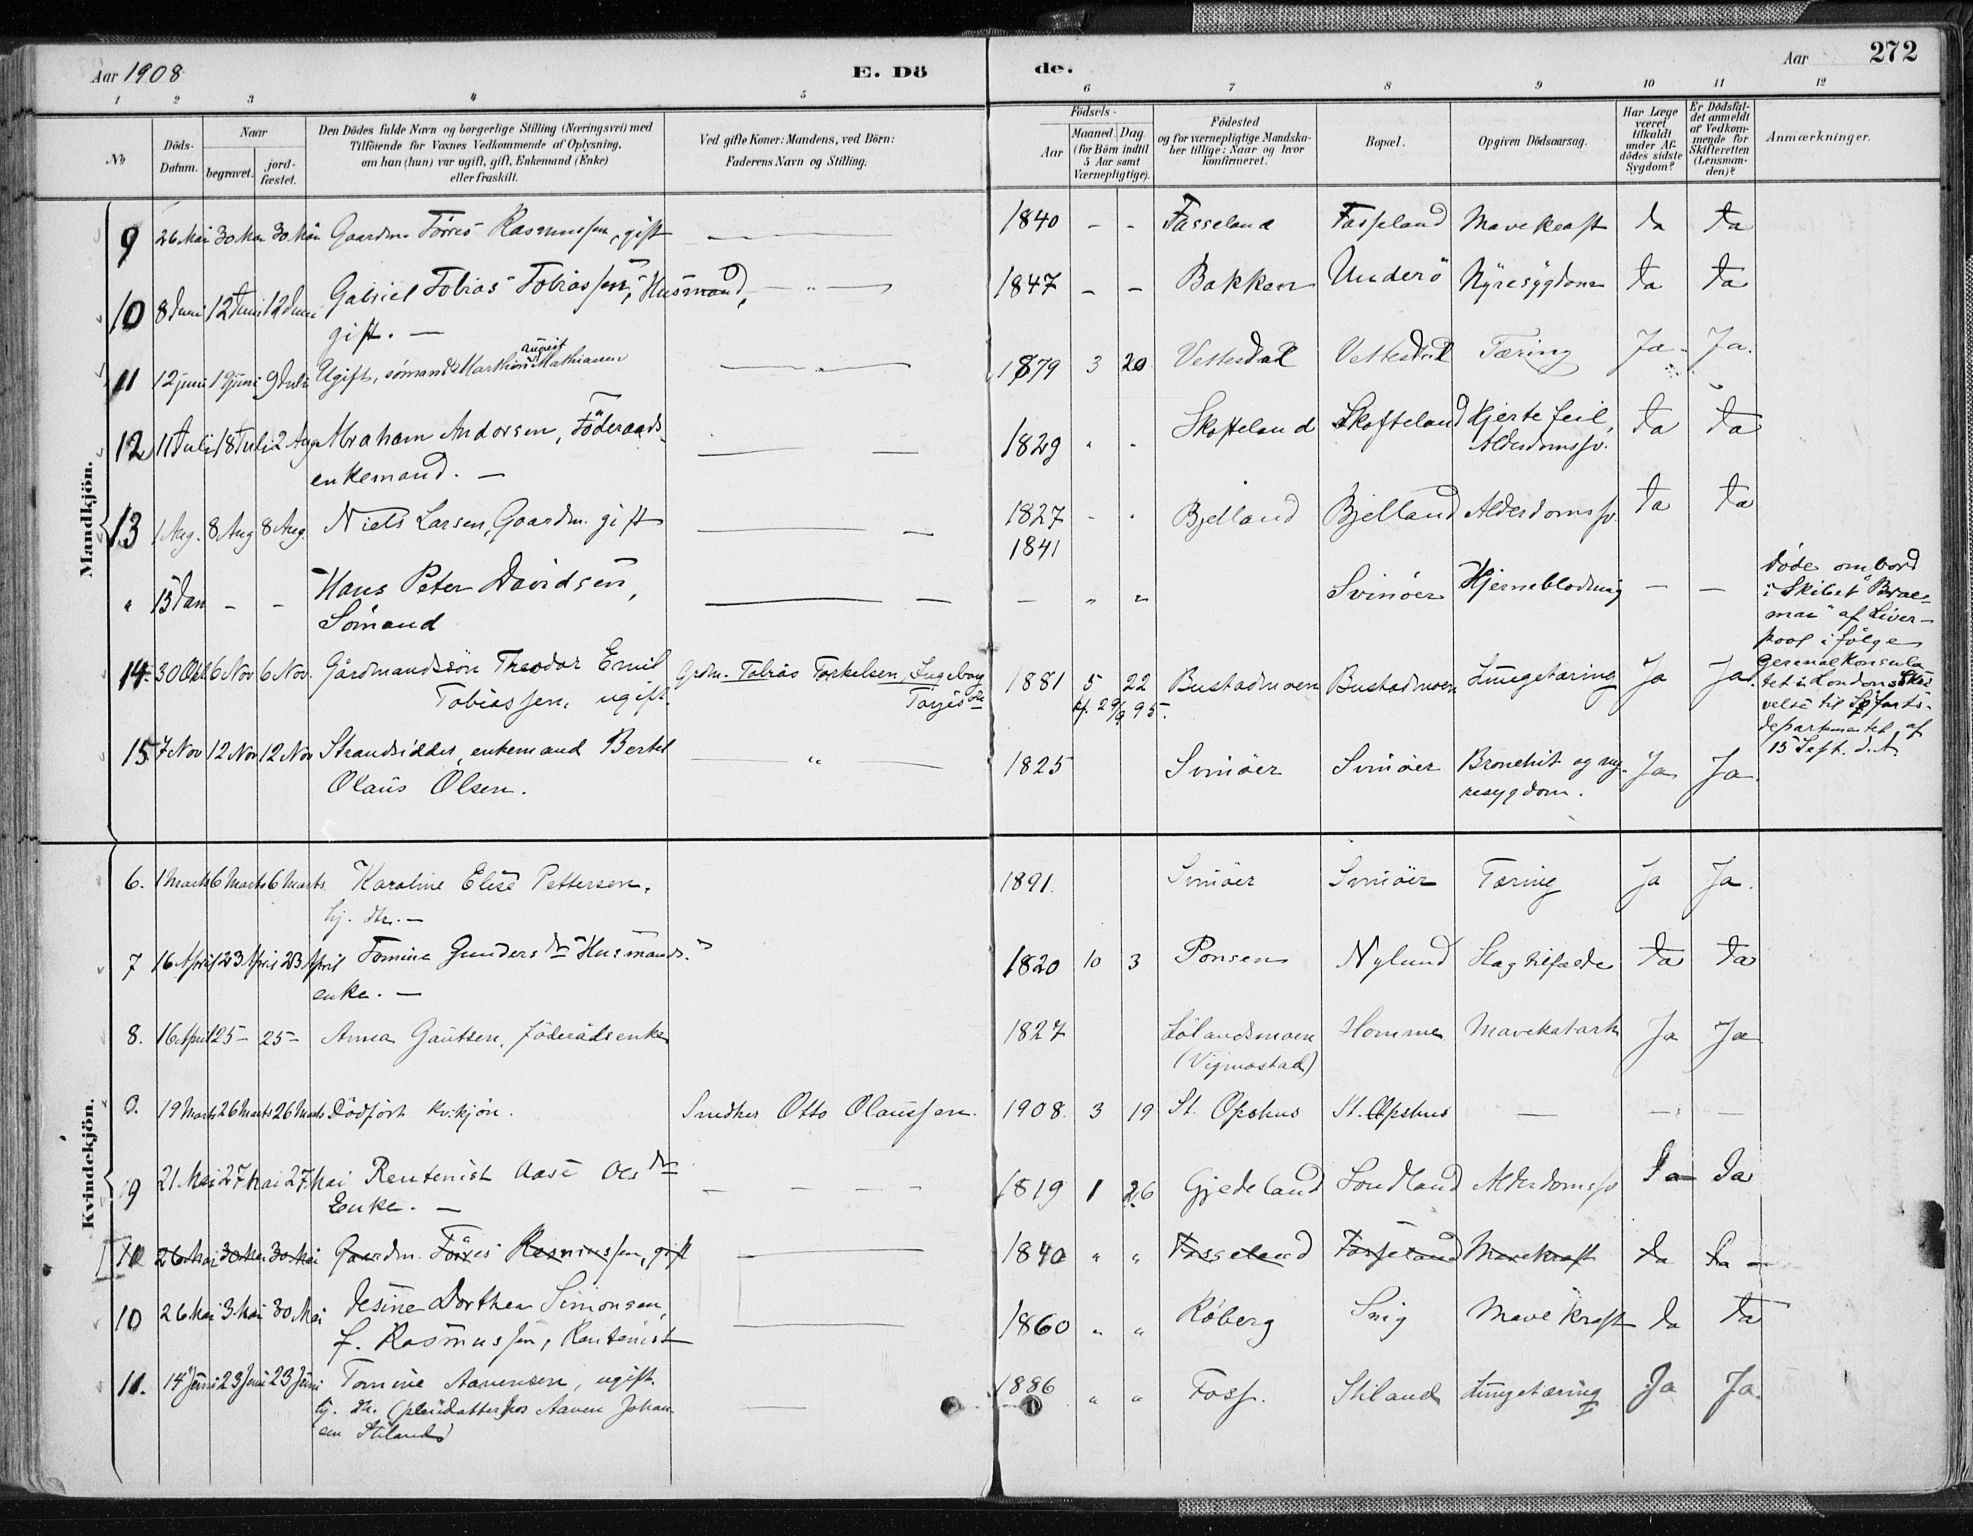 Aar 1908 E. Dö de. Aar 272
1 2 3 4 5 6 7 8 9 10 11 12
No
Döds-Datum.
Naar
begravet.
jordfæstet.
Den Dödes fulde Navn og borgerlige Stilling (Næringsvei) med
Tilföiende for Voxnes Vedkommende af Oplysning,
om han (hun) var ugift, gift, Enkemand (Enke)
eller fraskilt.
Ved gifte Koner: Mandens, ved Börn:
Faderens Navn og Stilling.
Födsels-
Aar
Maaned. Dag.
(for Börn indtil
5 Aar samt
Værnepligtige).
Födested
og for værnepligtige Mandskaber
tillige: Naar og hvor
konfirmeret.
Bopæl.
Opgiven Dödsaarsag.
Har Læge
været
tilkaldt
under Afdödes
sidste
Sygdom?
Er Dödsfaldet
anmeldt
af Vedkommende
for
Skifteretten
(Lensmanden)?
Anmærkninger.
Mandkjön.
9 26 Mai 30 Mai 30 Mai Gaardm. Törres Rasmussen, gift 1840 - - Fasseland Fasseland Mavekraft Ja Ja
10 8 Juni 12 Juni 12 Juni Gabriel Tobias Tobiassen, Husmand, — " — 1847 - - Bakken Underö Nyresygdom Ja Ja
gift. —
11 12 juni 19 juni 9 Juli Ugift, sømand Mathias august Mathiasen — " — 1879 3 20 Vettesdal Vettesdal Tæring Ja Ja.
12 11 Juli 18 Juli 2 Aug Abraham Andersen, Föderaads- 1829 " - Skofteland Skofteland Hjertefeil, Ja Ja
enkemand. — Alderdomssv.
13 1 Aug. 8 Aug 8 Aug. Niels Larsen, Gaardm. gift 1827 - - Bjelland Bjelland Alderdomssv. Ja Ja
1841
" 15 Jan - - Hans Peter Davidsen, — " " Svinöer Hjerneblödning — —
Sömand
Döde ombord
i Skibet "Brae-
mar" af Liver-
pool ifölge
Generalkonsula
tet i London
velse til Söfarts-
departementet af
15 Sept. d.A.
14. 30 Okt 6 Nov 6 Nov. Gårdmandssön Theodor Emil Grdm. Tobias Torkelsen, Ingeborg 1881 5 22 Bustadmoen Bustadmoen Lungetæring Ja Ja
Tobiassen, ugift. k. 29/9 95.
15. 7 Nov 12 Nov 12 Nov Strandsidder, enkemand Bertel — " — 1825 Svinöer Svinöer Bronchit og ny- Ja Ja
Olaus Olsen. resygdom.
Kvindekjön.
6. 1 Marts 6 Marts 6 Marts Karoline Elise Pettersen, 1891. Svinöer Svinöer Tæring Ja Ja.
hj. dtr. —
7 16 April 23 April 23 April Tomine Gundersdtr Husmands- 1820 10 3 Ponsen Nylund Slagtilfælde Ja Ja
enke. —
8. 16 April 25 - 25 - Anna Gautsen, föderådsenke 1827 Lölandsmoen Homme Mavekatarh Ja Ja
(Vigmostad)
0. 19 Marts 26 Marts 26 Marts Dödfört kv.kjön. Snedker Otto Olaussen. 1908. 3 19 St. Opshus St. Opshus — — —
9 21 Mai 27 Mai 27 Mai Rentenist Aase Olsdtr — — — 1819 1 26 Gjedeland Sondland Alderdomssv Ja Ja
Enke. —
10 26 Mai 30 Mai 30 Mai Gaardm. Törres Rasmussen, gift 1840 " " Fasseland Fasseland Mavekraft Ja Ja —
10 26 Mai 3 Mai 30 Mai Jesine Dorthea Simonsen, 1860 " " Röberg Snig Mavekraft Ja Ja
f. Rasmussen, Rentenist
11. 14 Juni 23 Juni 23 Juni Tomine Aanensen, ugift. 1886 " " Foss. Stiland Lungetæring Ja Ja.
hj. dtr. (pleiedatter hos Aanen Johan
sen Stiland)